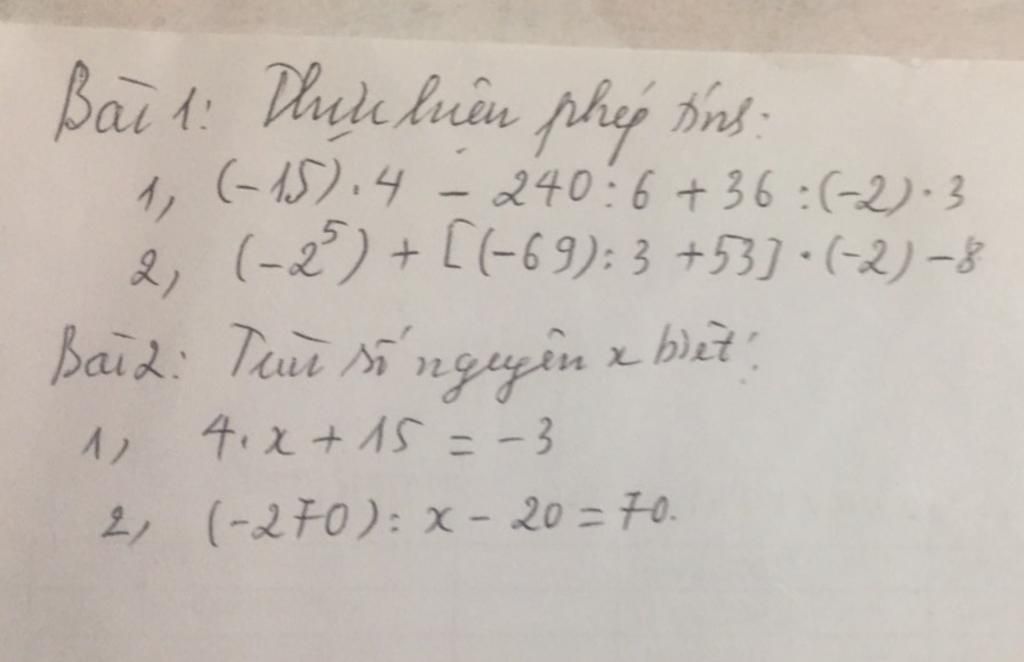 Bài 1: Thực hiện phép tính:
1, (-15).4 - 240:6 + 36:(-2).3
2, (-2⁵) + [(-69):3 +53].(-2) -8
Bài 2: Tìm số nguyên x biết:
1, 4.x + 15 = -3
2, (-270): x - 20 = 70.